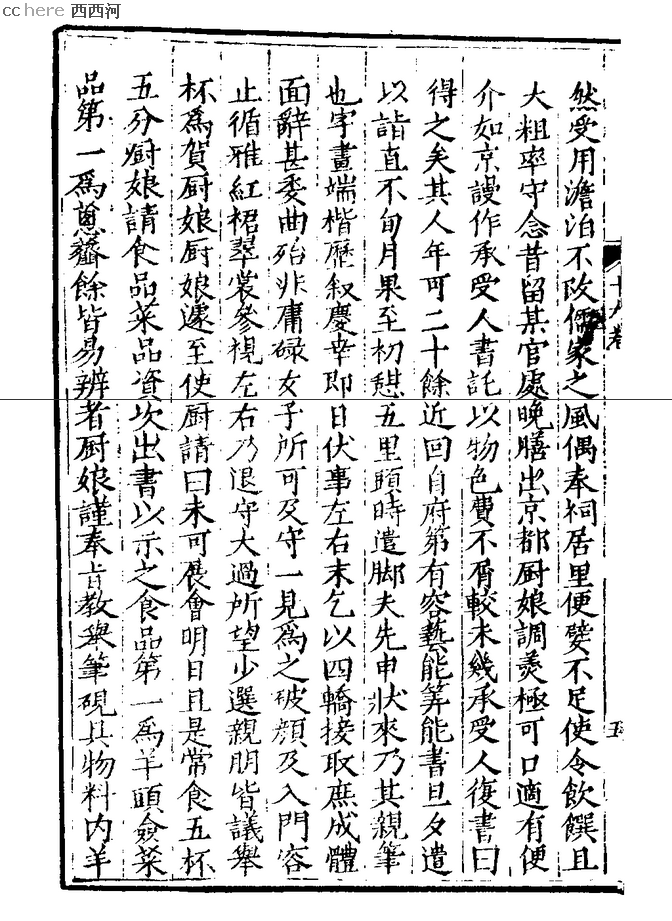 cchere 西西河
十八卷
五
然受用澹泊不改儒家之風偶奉祠居里便嬖不足使令飲饌且
大粗率守念昔留某官處晚膳出京都厨娘調羹極可口適有便
介如京謾作承受人書託以物色費不屑較未幾承受人復書曰
得之矣其人年可二十餘近回自府第有容藝能筭能書旦夕遣
以詣直不旬月果至初憇五里頭時遣脚夫先申狀來乃其親筆
也字畫端楷歷叙慶幸即日伏事左右末乞以四轎接取庶成體
面辭甚委曲殆非庸碌女子所可及守一見爲之破顔及入門容
止循雅紅裙翠裳參視左右乃退守大過所望少選親朋皆議舉
杯爲賀厨娘厨娘遽至使厨請曰未可展會明日且是常食五杯
五分厨娘請食品菜品資次出書以示之食品第一爲羊頭僉菜
品第一爲葱虀餘皆易辨者厨娘謹奉旨教舉筆硯具物料内羊